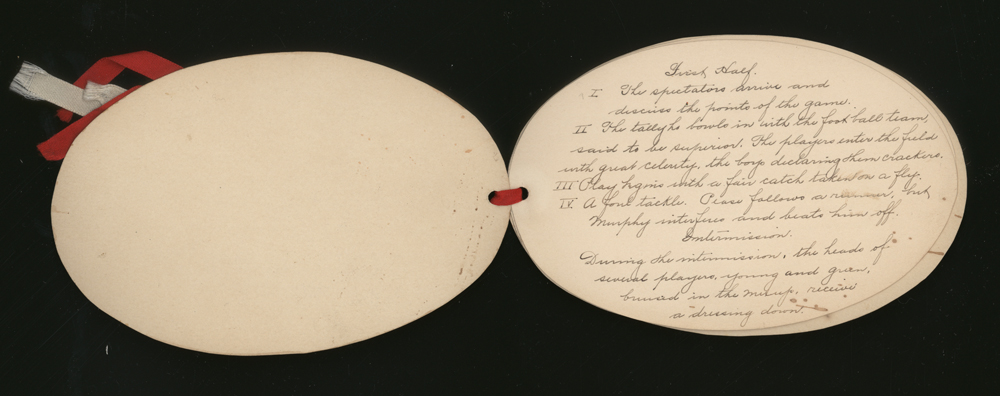 First Half.
I The spectators arrive and
discuss the points of the game.
II The tallyho bowls in with the foot ball team,
said to be superior. The players enter the field
with great celerity, the boys declaring them crackers.
III Play begins with a fair catch taken on a fly.
IV. A foul tackle. Pease follows a runner, but
Murphy interferes and beats him off.
Intermission.
During the intermission, the heads of
several players, young and green,
bruised in the mixup, receive
a dressing down.